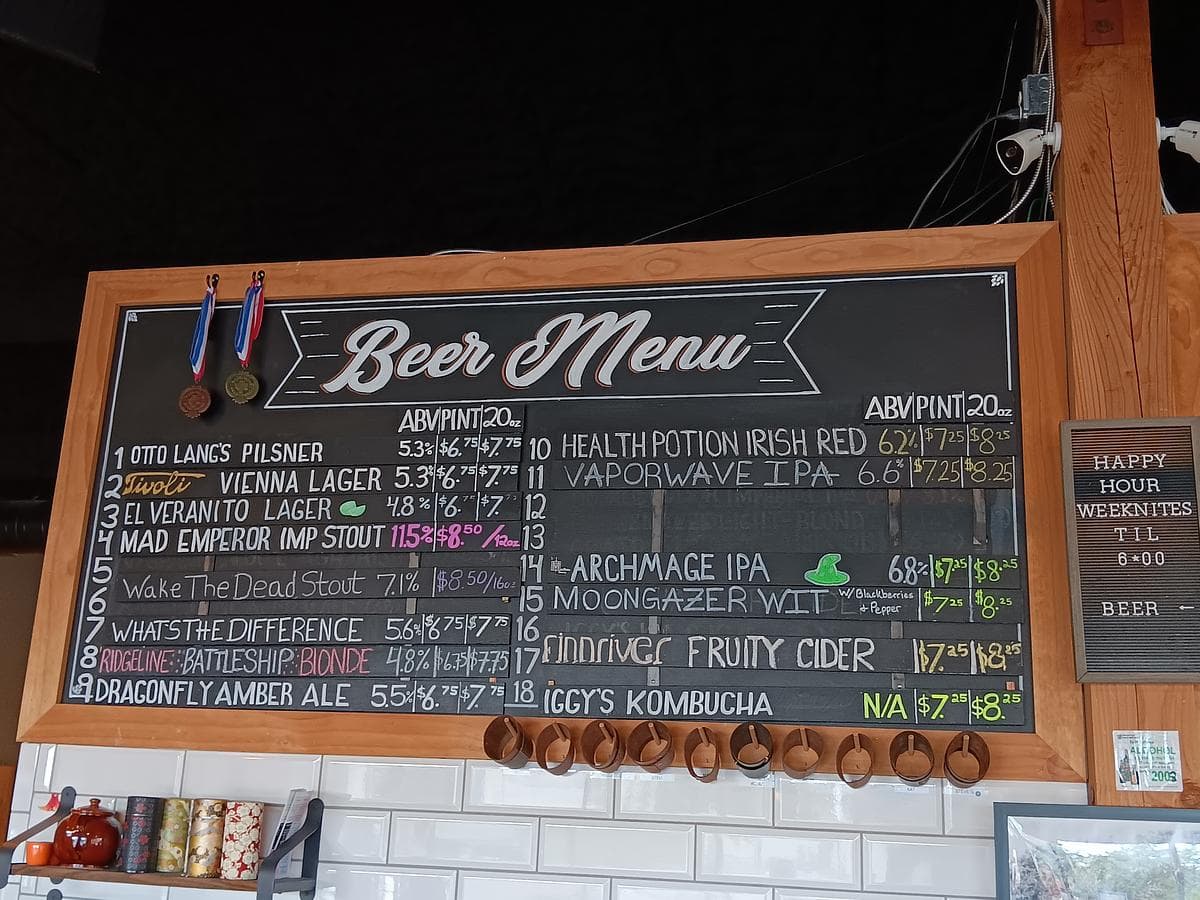 Beer Menu
ABV PINT 20oz
1 OTTO LANG'S PILSNER 5.3% $6.75 $7.75
2 Tivoli VIENNA LAGER 5.3% $6.75 $7.75
3 EL VERANITO LAGER 4.8% $6.75 $7.75
4 MAD EMPEROR IMP STOUT 11.5% $8.50/12oz
5
Wake The Dead Stout 7.1% $8.50/16oz
6
7 WHATS THE DIFFERENCE 5.6% $6.75 $7.75
8 RIDGELINE::BATTLESHIP::BLONDE 4.8% $6.75 $7.75
9 DRAGONFLY AMBER ALE 5.5% $6.75 $7.75
ABV PINT 20oz
10 HEALTH POTION IRISH RED 6.2% $7.25 $8.25
11 VAPORWAVE IPA 6.6% $7.25 $8.25
12
13
14 ARCHMAGE IPA 6.8% $7.25 $8.25
15 MOONGAZER WIT W/Blackberries + Pepper $7.25 $8.25
16
17 finnriver FRUITY CIDER $7.25 $8.25
18 IGGY'S KOMBUCHA N/A $7.25 $8.25
HAPPY
HOUR
WEEKNITES
TIL
6*00
BEER ←
ALCOHOL
2003